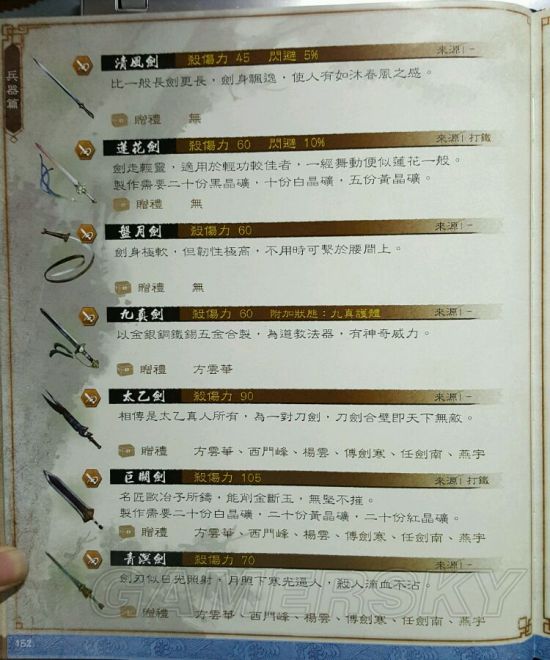 兵器篇
清風劍 殺傷力 45 閃避 5% 來源|-
比一般長劍更長,劍身飄逸,使人有如沐春風之感。
贈禮 無
蓮花劍 殺傷力 60 閃避 10% 來源|打鐵
劍走輕靈,適用於輕功較佳者,一經舞動便似蓮花一般。
製作需要二十份黑晶礦,十份白晶礦,五份黃晶礦。
贈禮 無
盤月劍 殺傷力 60 來源|-
劍身極軟,但韌性極高,不用時可繫於腰間上。
贈禮 無
九真劍 殺傷力 60 附加狀態:九真護體 來源|-
以金銀銅鐵錫五金合製,為道教法器,有神奇威力。
贈禮 方雲華
太乙劍 殺傷力 90 來源|-
相傳是太乙真人所有,為一對刀劍,刀劍合壁即天下無敵。
贈禮 方雲華、西門峰、楊雲、傅劍寒、任劍南、燕宇
巨闕劍 殺傷力 105 來源|打鐵
名匠歐冶子所鑄,能削金斷玉,無堅不摧。
製作需要二十份白晶礦,二十份黃晶礦,二十份紅晶礦。
贈禮 方雲華、西門峰、楊雲、傅劍寒、任劍南、燕宇
青溟劍 殺傷力 70 來源|-
劍刃似日光照射,月照下寒光逼人,殺人滴血不沾。
贈禮 方雲華、西門峰、楊雲、傅劍寒、任劍南、燕宇
GAMERSKY
152